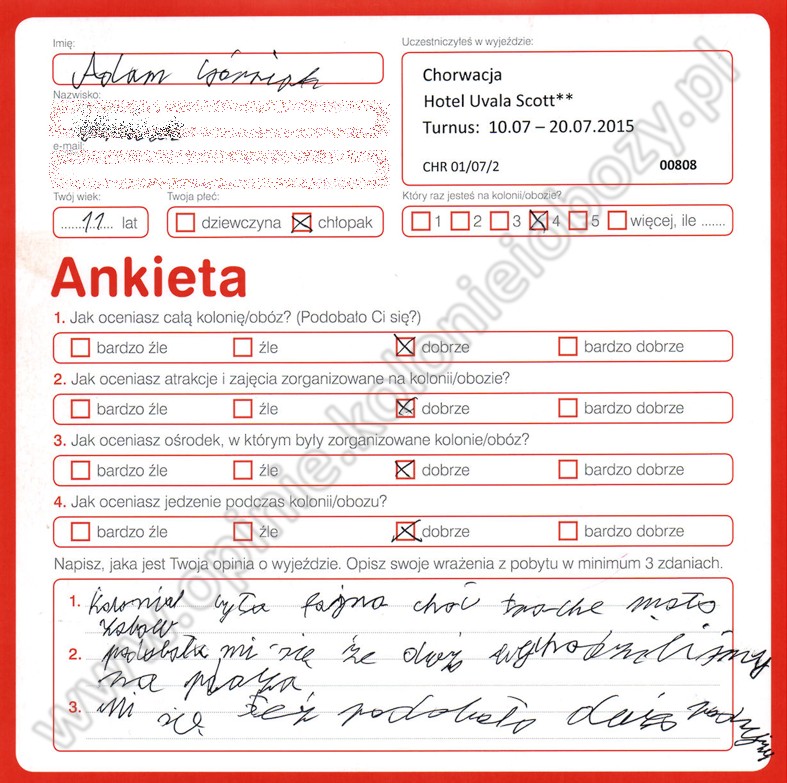 Imię:
Adam
Nazwisko:
e-mail:
Uczestniczyłeś w wyjeździe:
Chorwacja
Hotel Uvala Scott**
Turnus: 10.07 – 20.07.2015
CHR 01/07/2 00808
Twój wiek:
11 lat
Twoja płeć:
dziewczyna chłopak
Który raz jesteś na kolonii/obozie?
1 2 3 4 5 więcej, ile .......
Ankieta
1. Jak oceniasz całą kolonię/obóz? (Podobało Ci się?)
bardzo źle źle dobrze bardzo dobrze
2. Jak oceniasz atrakcje i zajęcia zorganizowane na kolonii/obozie?
bardzo źle źle dobrze bardzo dobrze
3. Jak oceniasz ośrodek, w którym były zorganizowane kolonie/obóz?
bardzo źle źle dobrze bardzo dobrze
4. Jak oceniasz jedzenie podczas kolonii/obozu?
bardzo źle źle dobrze bardzo dobrze
Napisz, jaka jest Twoja opinia o wyjeździe. Opisz swoje wrażenia z pobytu w minimum 3 zdaniach.
1. była fajna choć mało
2. mi się że
na
3. Mi się też podobało dużo
www.opinie.kolonieiobozy.pl